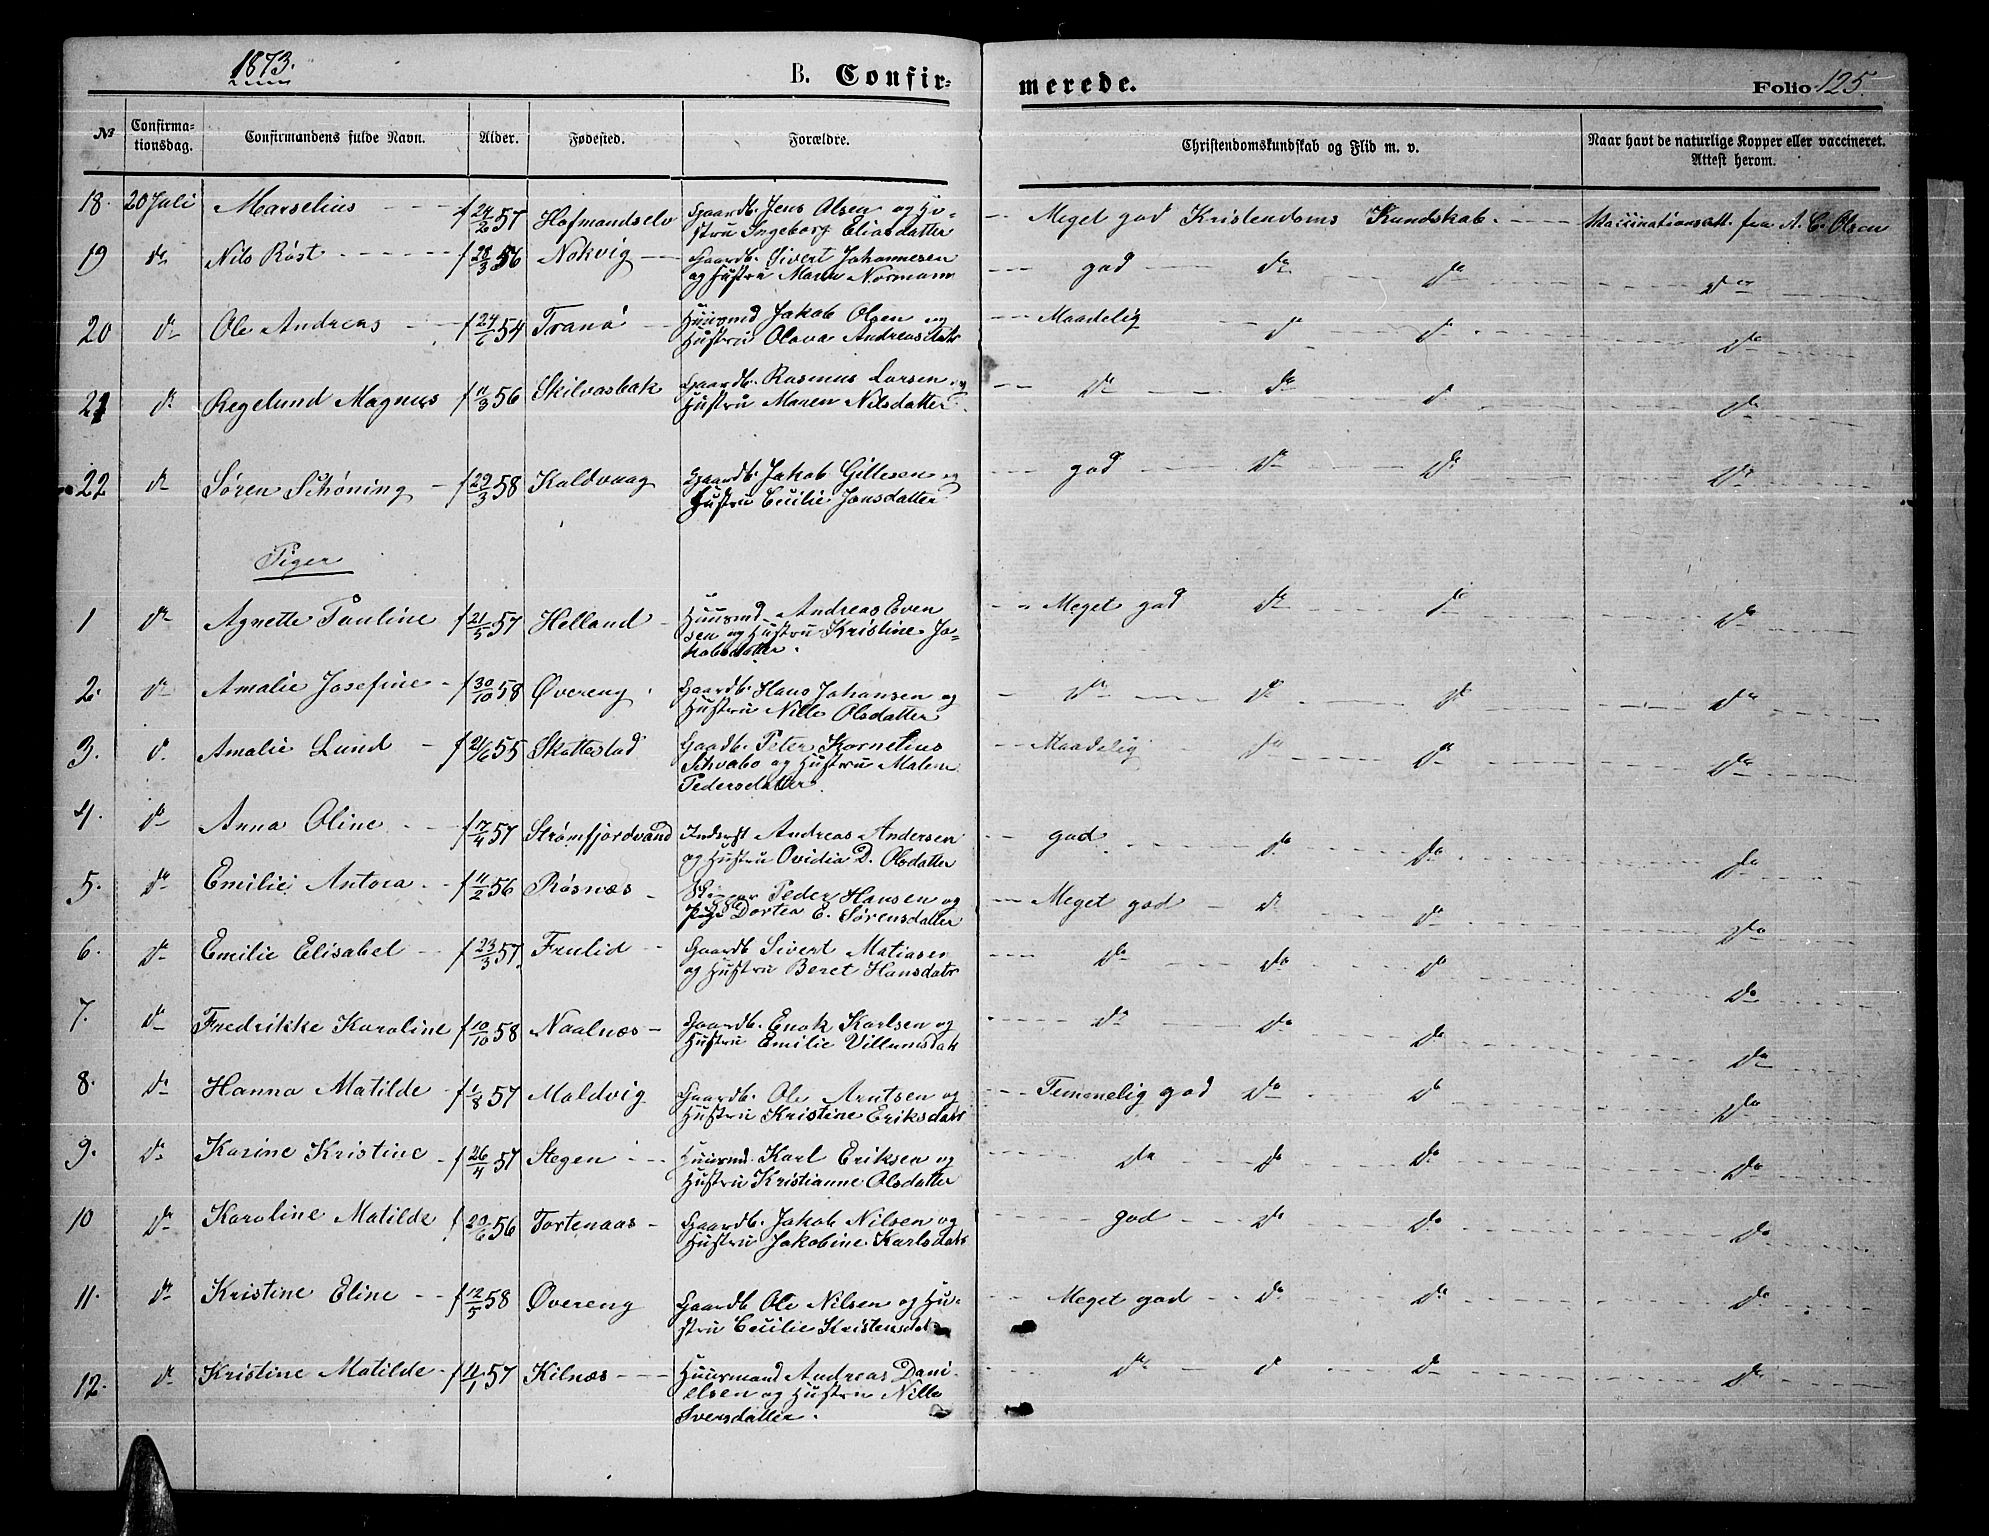 1873.
B. Confirmerede.
Folio 125.
№ Confirmationsdag. Confirmandens fulde Navn. Alder. Fødested. Forældre. Christendomskundskab og Flid m. v. Naar havt de naturlige Kopper eller vaccineret. Attest herom.
18. 20 Juli Marselius f 24/2 57 Hofmandselv Gaardb. Jens Olsen og Hu- Meget god Kristendoms Kundskab. Vaccinationsatt. fra A. C. Olsen
stru Ingeborg Eliasdatter
19 do Nils Røst f 28/3 56 Nokvig Gaardb. Sivert Johannesen god do do do
og Hustru Maren Normann
20 do Ole Andreas f 24/6 54 Tranø Huusmd Jakob Olsen og Maadelig do do do
Hustru Olava Andreasdatr
21 do Regelund Magnus f 11/3 56 Skilvasbak Gaardb. Rasmus Larsen og do do do do
Hustru Maren Nilsdatter
22 do Søren Schøning f 29/3 58 Kaldvaag Gaardb. Jakob Gillesen og god do do do
Hustru Cecilie Jonsdatter
Piger
1 do Agnette Pauline f 21/5 57 Helland Huusmd. Andreas Even Meget god do do do
sen og Hustru Kristine Ja-
kobsdatter.
2. do Amalie Josefine f 30/10 58 Øvereng Gaardb. Hans Johansen og do do do do
Hustru Nille Olsdatter
3. do Amalie Lund f 21/6 55 Skottestad Gaardb. Peter Kornelius Maadelig do do do
Schvabo og Hustru Malene
Pedersdatter.
4. do Anna Oline f 17/4 57 Strømfjordvand Inderst Andreas Andersen god do do do
og Hustru Ovidia D. Olsdatter
5. do Emilie Antora f 11/2 56 Røsnæs Peder Hansen og Meget god do do do
Pige Dortea E. Sørensdatter
6. do Emilie Elisabet f 23/3 57 Frulid Gaardb Sivert Matiasen do do do do
og Hustru Beret Hansdatr
7. do Fredrikke Karoline f 10/10 58 Naalnæs Gaardb. Enok Karlsen og do do do do
Hustru Emilie Villumsdatr
8. do Hanna Matilde f 1/8 57 Maldvig Gaardb. Ole Arntsen og Temmelig god do do do
Hustru Kristine Eriksdatr
9. do Karine Kristine f 26/4 57 Stegen Huusmd. Karl Eriksen og do do do do
Hustru Kristianne Olsdatter
10 do Karoline Matilde f 20/6 56 Tortenaas Gaardb. Jakob Nilsen og god do do do
Hustru Jakobine Karlsdatr
11. do Kristine Eline f 12/5 58 Øvereng Gaardb Ole Nilsen og Hu- Meget god do do do
stru Cecilie Kristensdat
12. do Kristine Matilde f 11/1 57 Kilnæs Huusmand Andreas Dani- do do do do
elsen og Hustru Nille
Iversdatter.